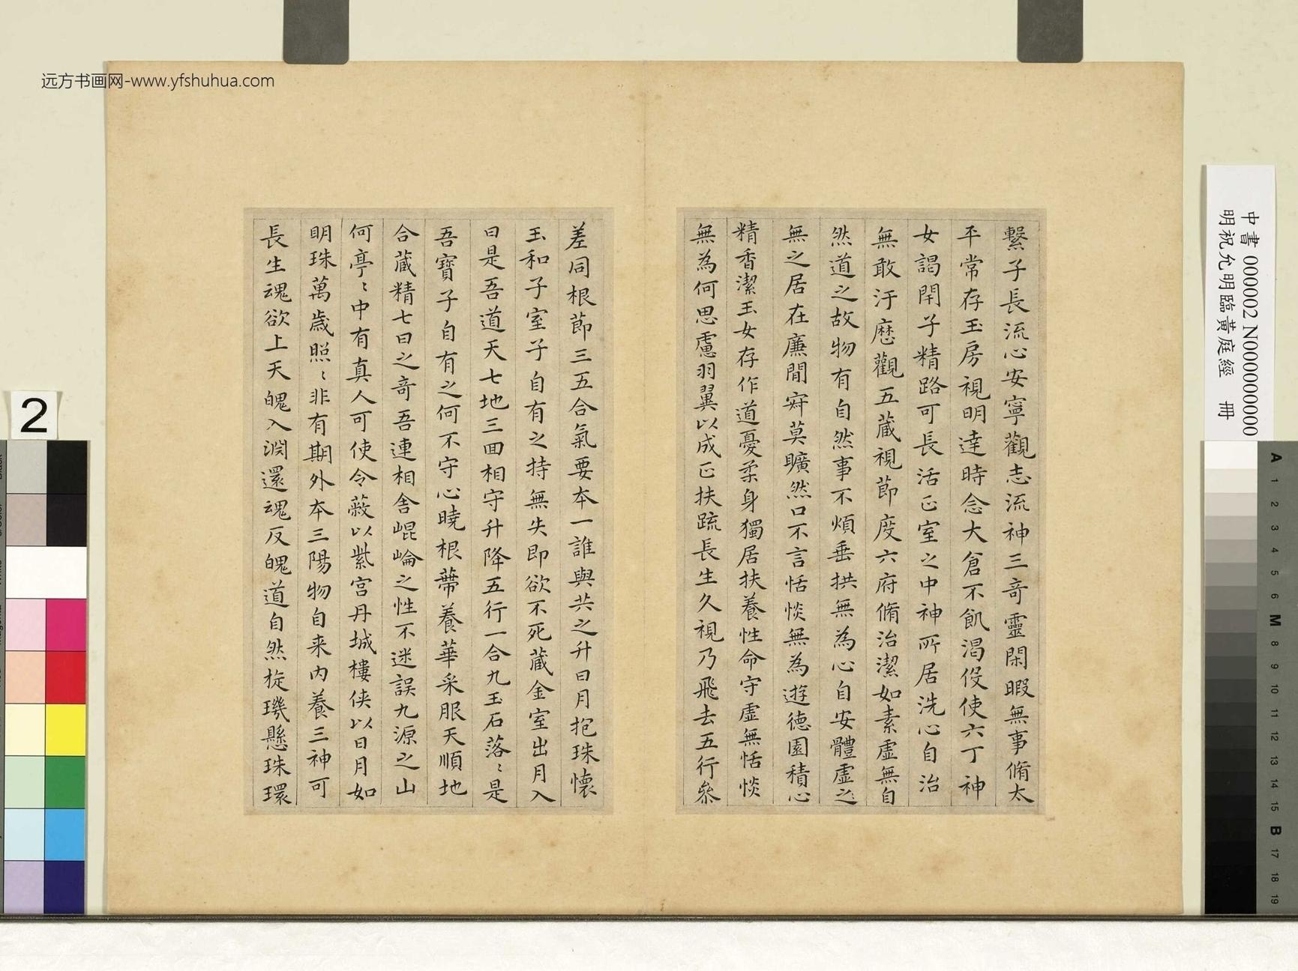 远方书画网-www.yfshuhua.com
繫子長流心安寧觀志流神三奇靈閑暇無事脩太
平常存玉房視明達時念大倉不飢渴役使六丁神
女謁閇子精路可長活正室之中神所居洗心自治
無敢汙歷觀五藏視節度六府脩治潔如素虛無自
然道之故物有自然事不煩垂拱無為心自安體虛之
無之居在廉間寂莫曠然口不言恬惔無為遊德園積心
精香潔玉女存作道憂柔身獨居扶養性命守虛無恬惔
無為何思慮羽翼以成正扶疏長生久視乃飛去五行參
差同根節三五合氣要本一誰與共之升日月抱珠懷
玉和子室子自有之持無失即欲不死藏金室出月入
日是吾道天七地三回相守升降五行一合九玉石落〻是
吾寶子自有之何不守心曉根蔕養華采服天順地
合藏精七日之奇吾連相舍崐崘之性不迷誤九源之山
何亭〻中有真人可使令蔽以紫宫丹城樓俠以日月如
明珠萬歲照〻非有期外本三陽物自来內養三神可
長生魂欲上天魄入淵還魂反魄道自然旋璣懸珠環
中書 000002 N000000000
明祝允明臨黃庭經 冊
2
A 1 2 3 4 5 6 M 8 9 10 11 12 13 14 15 B 17 18 19